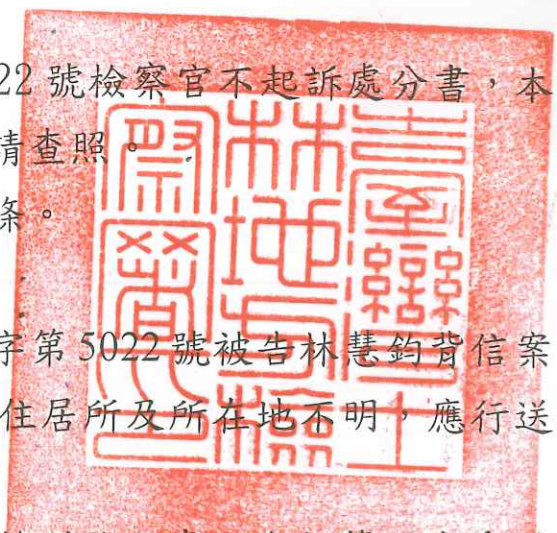 22 號檢察官不起訴處分書，本
請查照。
條。
：
字第 5022 號被告林慧鈞背信案
住居所及所在地不明，應行送
臺灣士
林地方檢
察署印